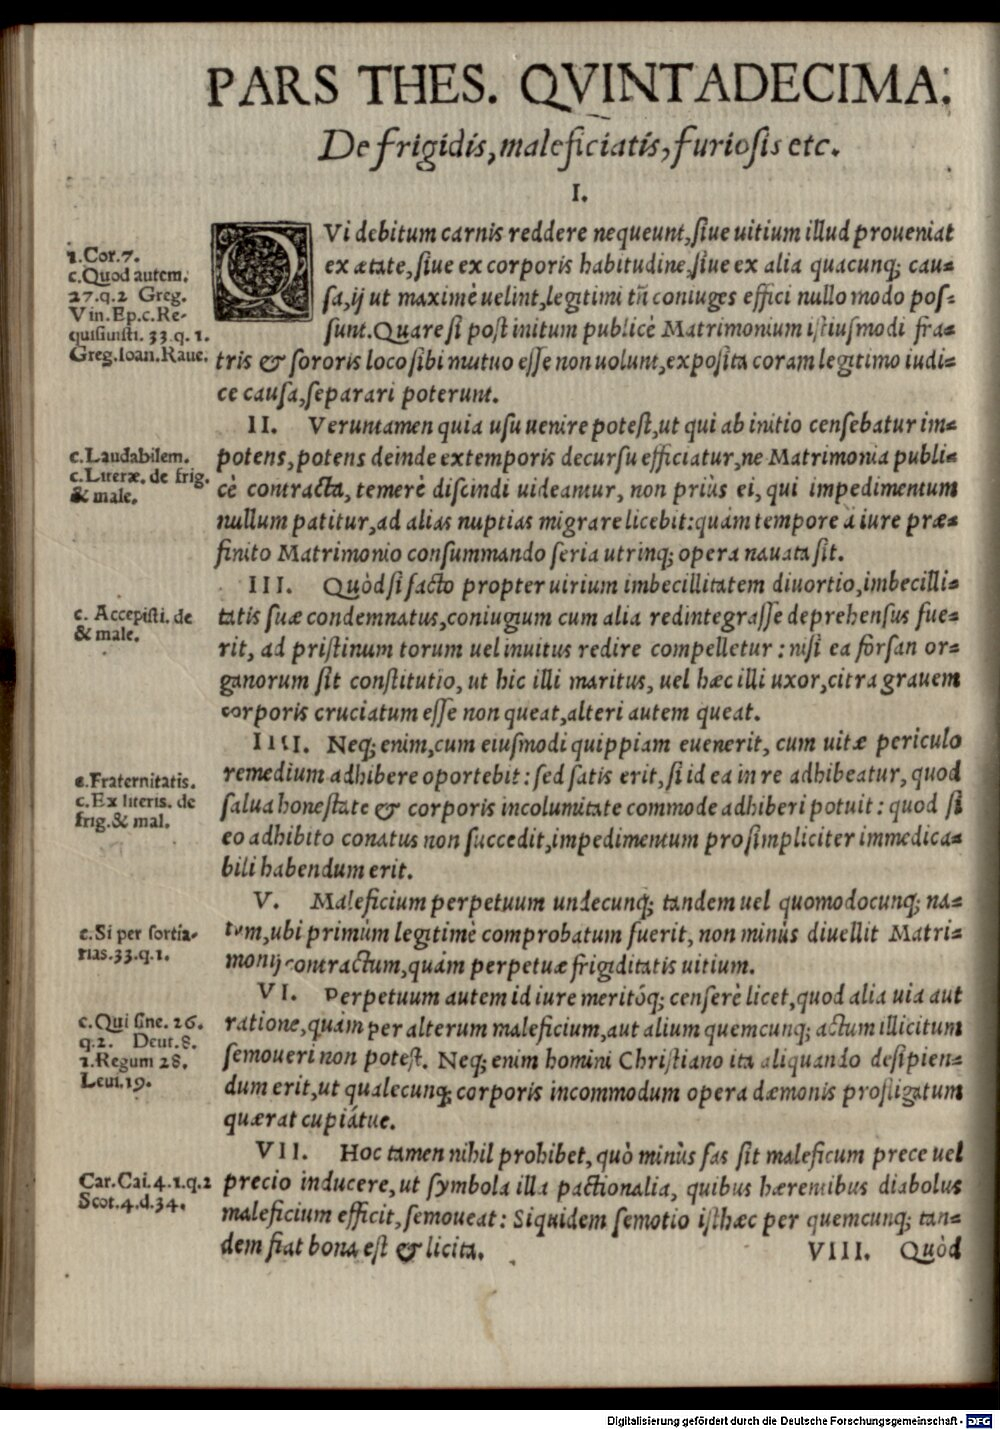 PARS THES. QVINTADECIMA:
De frigidis, maleficiatis, furiosis etc.
I.
QVi debitum carnis reddere nequeunt, siue uitium illud proueniat
ex ætate, siue ex corporis habitudine, siue ex alia quacunq; cau=
sa, ij ut maximè uelint, legitimi tñ coniuges effici nullo modo pos=
sunt. Quare si post initum publicè Matrimonium istiusmodi fra=
tris & sororis loco sibi mutuo esse non uolunt, exposita coram legitimo iudi=
ce causa, separari poterunt.
1.Cor.7.
c.Quod autem.
27.q.2 Greg.
Vin.Ep.c.Re-
quisiuisti. 33.q.1.
Greg.Ioan.Raue.
II. Veruntamen quia usu uenire potest, ut qui ab initio censebatur im=
potens, potens deinde ex temporis decursu efficiatur, ne Matrimonia publi=
cè contracta, temerè discindi uideantur, non priùs ei, qui impedimentum
nullum patitur, ad alias nuptias migrare licebit: quàm tempore à iure præ=
finito Matrimonio consummando seria utrinq; opera nauata sit.
c.Laudabilem.
c.Literæ. de frig.
& male.
III. Quòd si facto propter uirium imbecillitatem diuortio, imbecilli=
tatis suæ condemnatus, coniugium cum alia redintegrasse deprehensus fue=
rit, ad pristinum torum uel inuitus redire compelletur: nisi ea forsan or=
ganorum sit constitutio, ut hic illi maritus, uel hæc illi uxor, citra grauem
corporis cruciatum esse non queat, alteri autem queat.
c. Accepisti. de
& male.
IIII. Neq; enim, cum eiusmodi quippiam euenerit, cum uitæ periculo
remedium adhibere oportebit: sed satis erit, si id ea in re adhibeatur, quod
salua honestate & corporis incolumitate commode adhiberi potuit: quod si
eo adhibito conatus non succedit, impedimentum pro simpliciter immedica=
bili habendum erit.
c.Fraternitatis.
c.Ex literis. de
frig.& mal.
V. Maleficium perpetuum undecunq; tandem uel quomodocunq; na=
tum, ubi primùm legitimè comprobatum fuerit, non minùs diuellit Matri=
monij contractum, quàm perpetuæ frigiditatis uitium.
c.Si per sortia-
rias.33.q.1.
VI. Perpetuum autem id iure meritóq; censerè licet, quod alia uia aut
ratione, quàm per alterum maleficium, aut alium quemcunq; actum illicitum
semoueri non potest. Neq; enim homini Christiano ita aliquando desipien=
dum erit, ut qualecunq; corporis incommodum opera dæmonis profligatum
quærat cupiátue.
c.Qui sine. 26.
q.2. Deut.8.
1.Regum 28.
Leui.19.
VII. Hoc tamen nihil prohibet, quò minùs fas sit maleficum prece uel
precio inducere, ut symbola illa pactionalia, quibus hærentibus diabolus
maleficium efficit, semoueat: Siquidem semotio isthæc per quemcunq; tan=
dem fiat bona est & licita.
Car.Cai.4.1.q.2
Scot.4.d.34.
VIII. Quòd
Digitalisierung gefördert durch die Deutsche Forschungsgemeinschaft - DFG